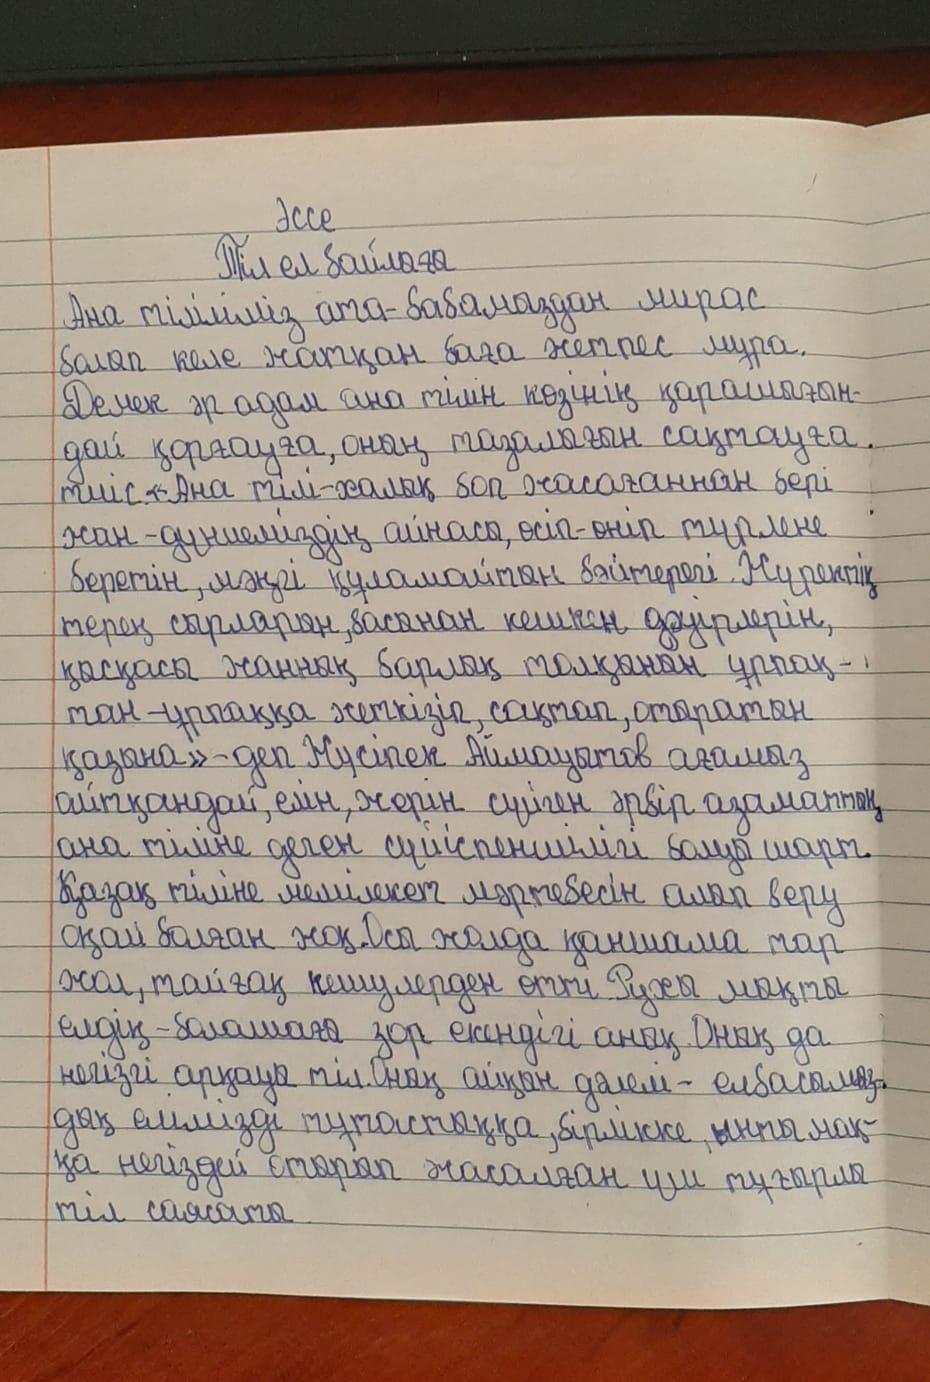 Эссе
Тіл ел байлығы
Ана тіліміз ата-бабамыздан мирас
болып келе жатқан баға жетпес мұра.
Демек әр адам ана тілін көзінің қарашығын-
дай қорғауға, оның тазалығын сақтауға.
тиіс. «Ана тілі-халық боп жасағаннан бері
жан-дүниеміздің айнасы, өсіп-өніп түрлене
беретін, мәңгі құламайтын бәйтерегі. Жүректің
терең сырларын, басынан кешкен дәуірлерін,
қысқасы жанның барлық толқынын ұрпақ-
тан-ұрпаққа жеткізіп, сақтап, отыратын
қазына»-деп Жүсіпек Аймауытов ағамыз
айтқандай, елін, жерін сүйген әрбір азаматтың
ана тіліне деген сүйіспеншілігі болуы шарт.
Қазақ тіліне мемілекет мәртебесін алып беру
оңай болған жоқ. Осы жолда қаншама тар
жол, тайғақ кешулерден өтті. Рухы мықты
елдің-болашағы зор екендігі анық. Оның да
негізгі арқауы тіл. Оның айқын дәлелі- елбасымыз-
дың елімізді тұтастыққа, бірлікке, ынтымақ-
қа негіздей отырып жасалған үш тұғырлы
тіл саясаты